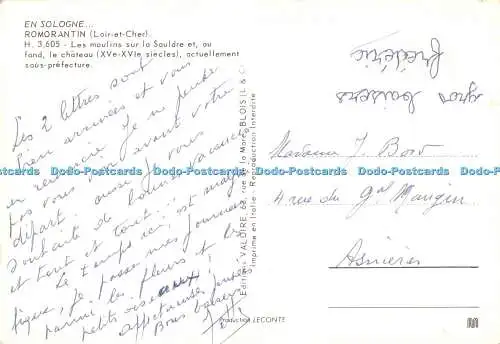 EN SOLOGNE...
ROMORANTIN (Loir-et-Cher).
H. 3.605 - Les moulins sur la Sauldre et, au
fond, le château (XVe-XVIe siècles), actuellement
sous-préfecture.
Les 2 lettres sont
bien arrivées et vous
en remercie Je ne pense
pas vous voir avant votre
départ. aussi je vous
souhaite de bonnes vacances
et tout et tout...
le temps ici est magni
fique, je passe mes journées
parmi les fleurs et les
petits oiseaux!
affectueuses pensées
Bons baisers
Editions VALOIRE, 62, rue de la Mare, BLOIS (L.&C.)
Imprimé en Italie - Reproduction Interdite
gros baisers
Frédéric
Madame J. Bord
4 rue du Gal Mangin
Asnières
Production LECONTE
Dodo-Postcards Dodo-Postcards Dodo-Postcards Dodo-Postcards Dodo-Postcards